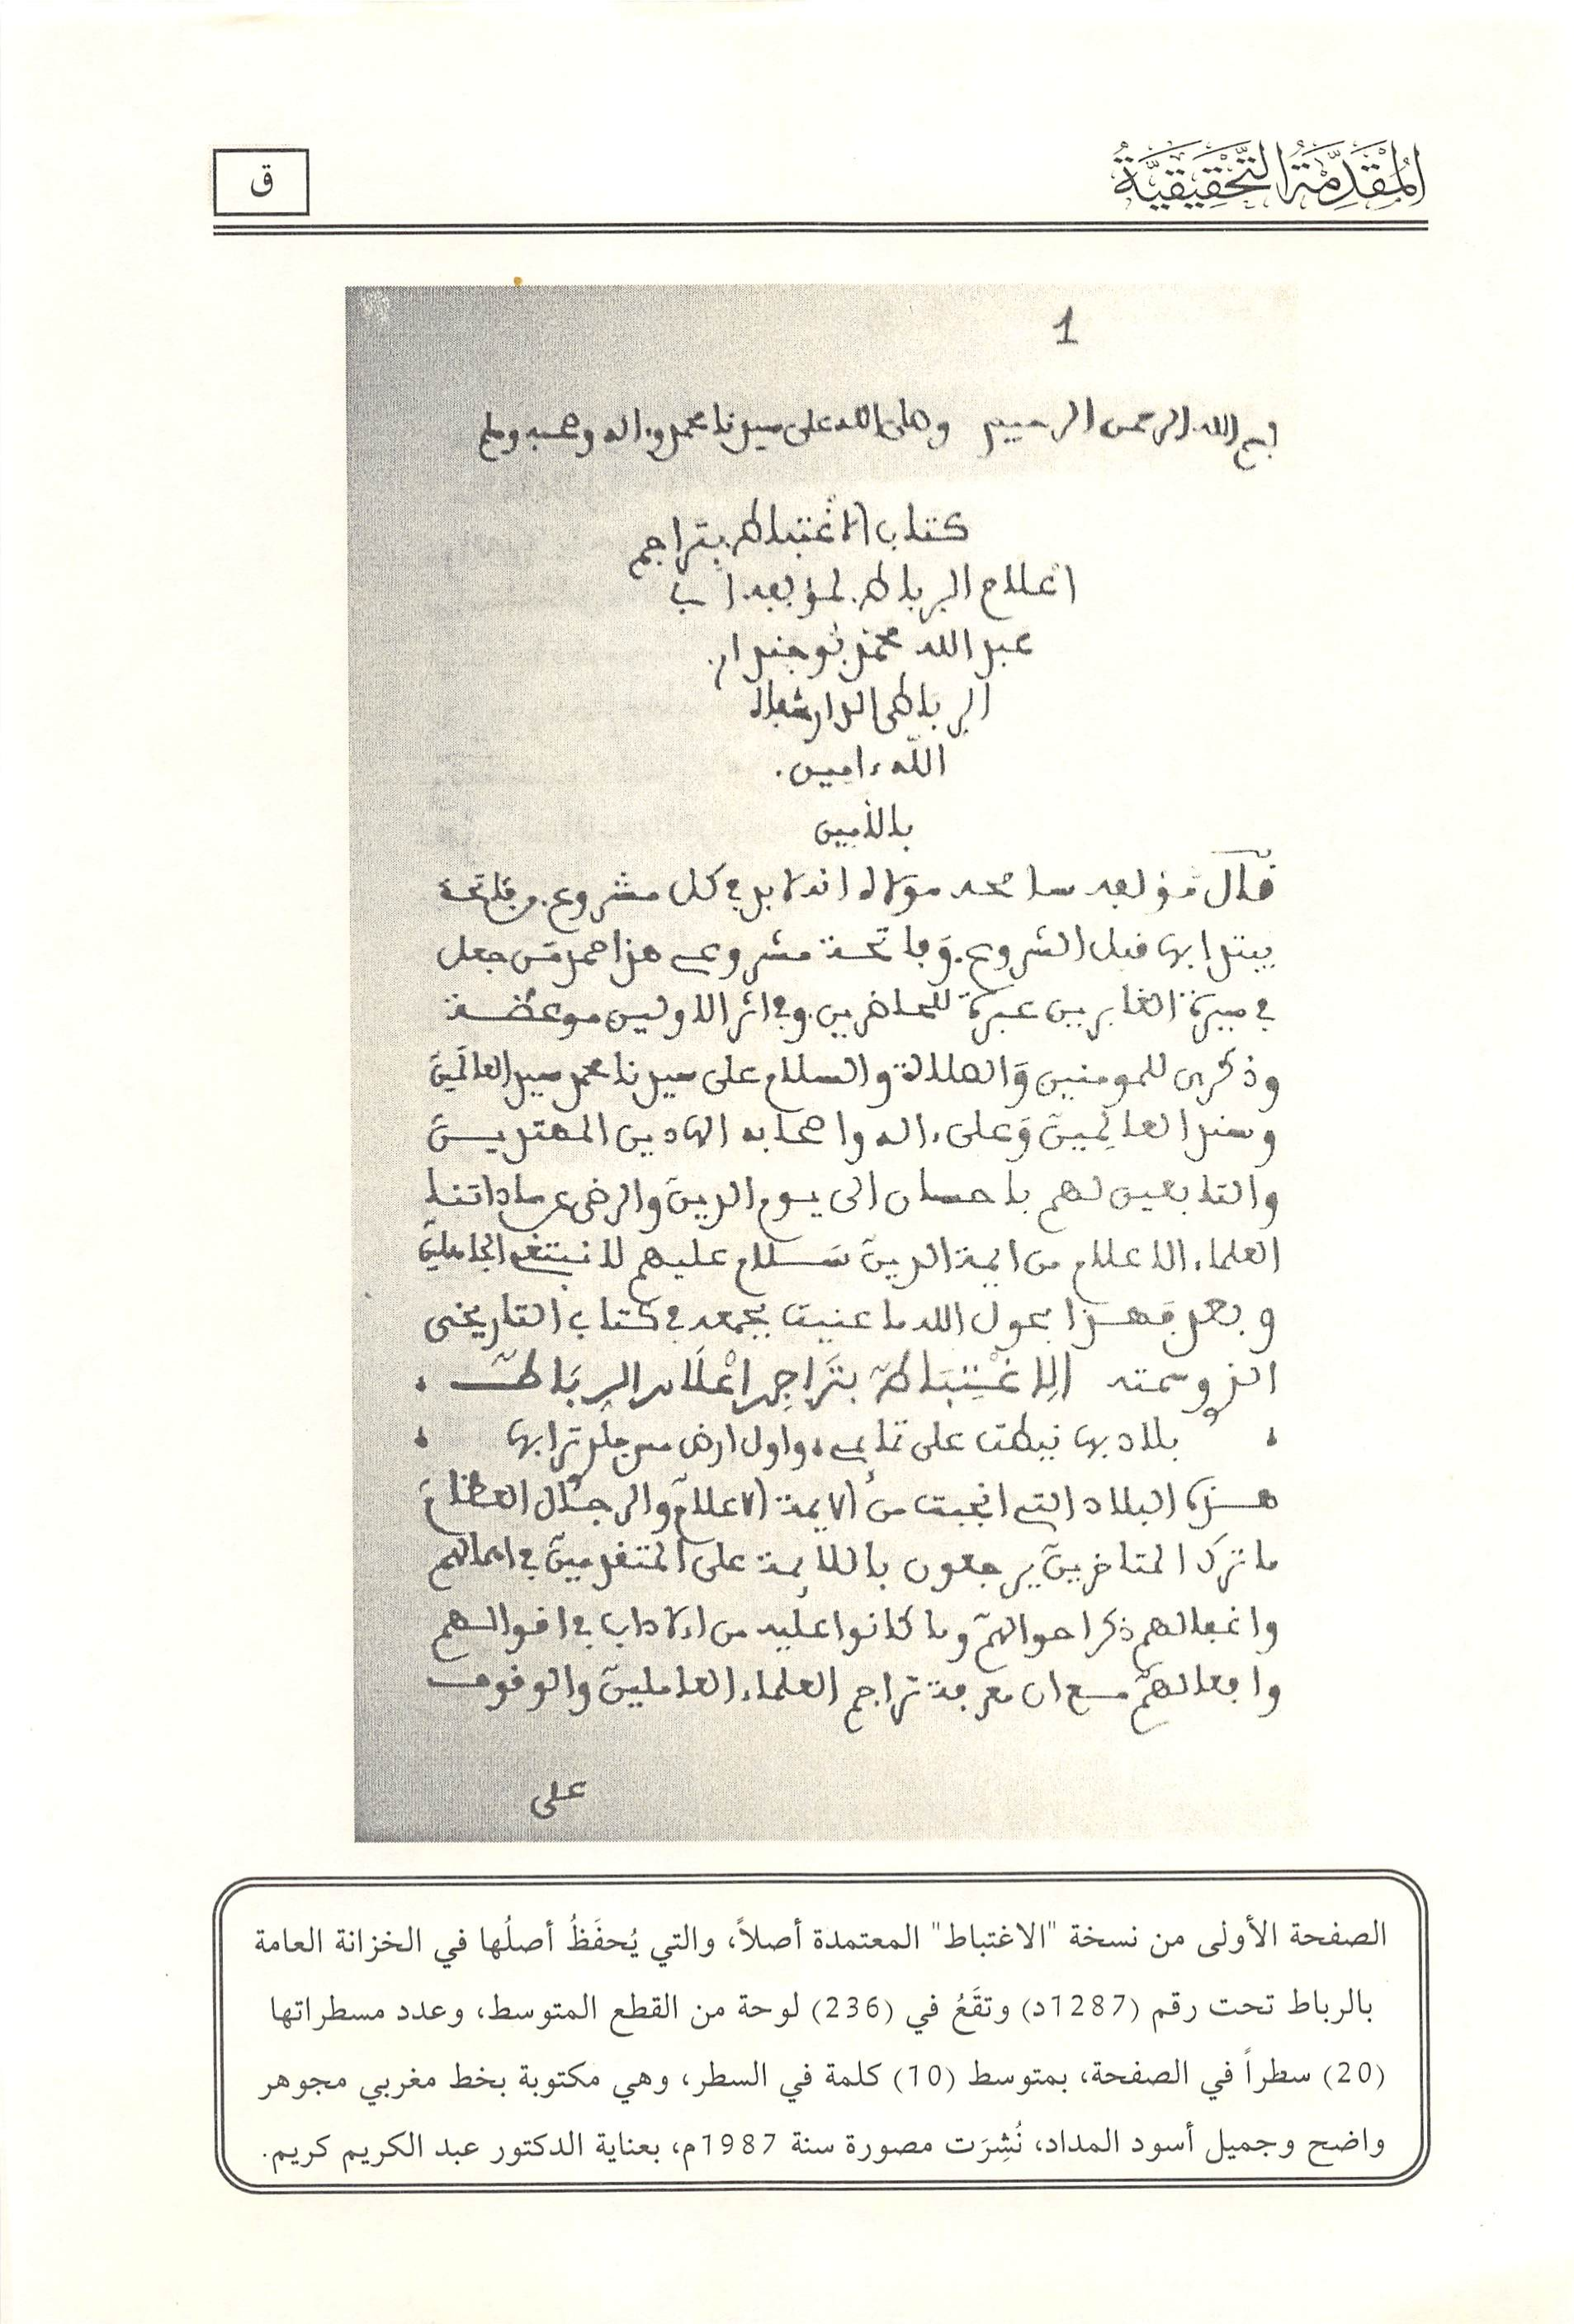 المُقَدِّمَةُ التَّحْقِيقِيَّةُ
ق
1
بسم الله الرحمن الرحيم وصلى الله على سيدنا محمد وءاله وصحبه وسلم
كتاب الاغتباط بتراجم
اعلام الرباط لمؤلفه اب
عبد الله محمد بوجندار
الرباطي الدار شفاه
الله ءامين
قال مؤلفه سامحه مولاه انه لا بد في كل مشروع من فاتحة
يبتدا بها قبل الشروع وفاتحة مشروعي هذا حمد من جعل
في سيرة الغابرين عبرة للحاضرين وفي اثر الاولين موعظة
وذكرى للمومنين والصلاة والسلام على سيدنا محمد سيد العالمين
وسند العالمين وعلى ءاله واصحابه الهادين المهتدين
والتابعين لهم باحسان الى يوم الدين والرضى عن ساداتنا
العلماء الاعلام من ايمة الدين سلام عليهم لا نبتغي الجاهلين
وبعد فهذا بحول الله ما عنيت بجمعه في كتاب التاريخي
الذي سميته الاغتباط بتراجم اعلام الرباط
بلاد بها نيطت على تمايمي واول ارض مس جلدي ترابها
هذه البلاد التي انجبت من الايمة الاعلام والرجال العظام
ما ترك المتاخرين يرجعون باللائمة على المتقدمين في اهمالهم
واغفالهم ذكر احوالهم وما كانوا عليه من الاداب في اقوالهم
وافعالهم مع ان معرفة تراجم العلماء العاملين والوقوف
على
الصفحة الأولى من نسخة "الاغتباط" المعتمدة أصلاً، والتي يُحفَظُ أصلُها في الخزانة العامة
بالرباط تحت رقم (1287د) وتقَعُ في (236) لوحة من القطع المتوسط، وعدد مسطراتها
(20) سطراً في الصفحة، بمتوسط (10) كلمة في السطر، وهي مكتوبة بخط مغربي مجوهر
واضح وجميل أسود المداد، نُشِرَت مصورة سنة 1987م، بعناية الدكتور عبد الكريم كريم.